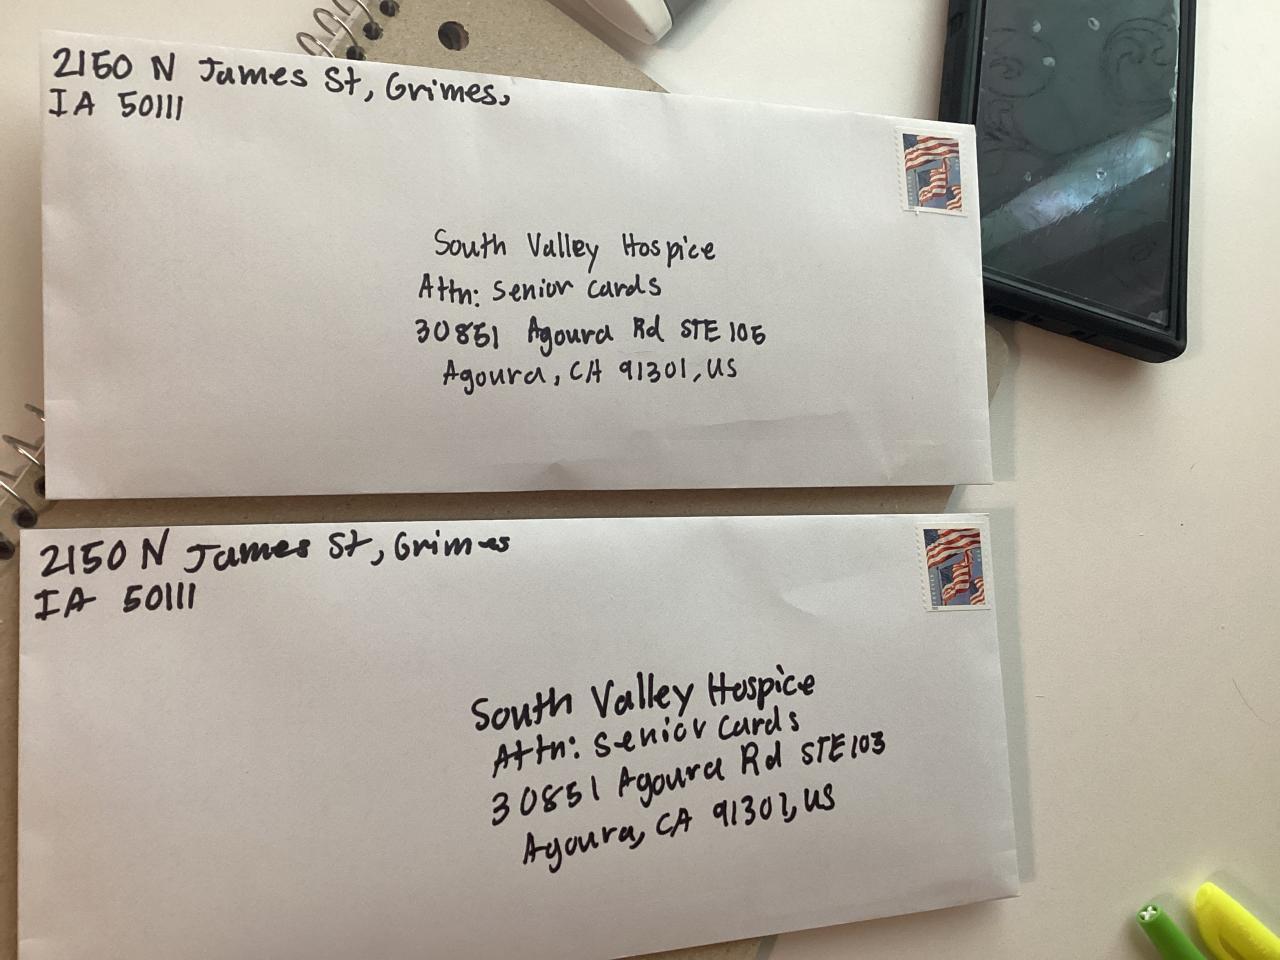 2150 N James St, Grimes,
IA 50111
South Valley Hospice
Attn: Senior cards
30851 Agoura Rd STE 105
Agoura, CA 91301, US
2150 N James St, Grimes
IA 50111
South Valley Hospice
Attn: Senior cards
30851 Agoura Rd STE 103
Agoura, CA 91301, US